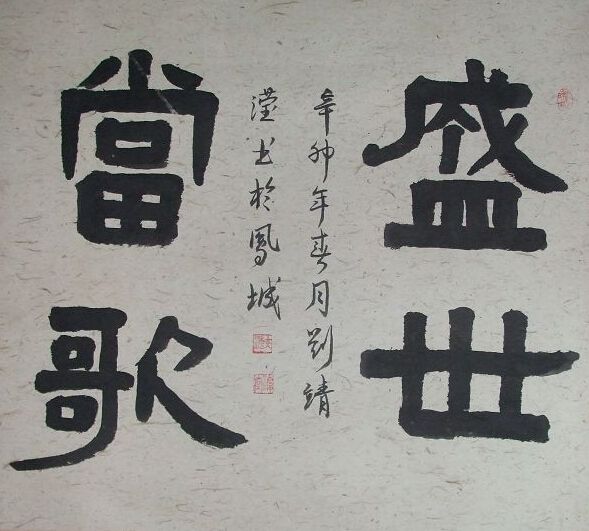 盛世
當歌
辛卯年春月劉靖
瀅书於鳳城